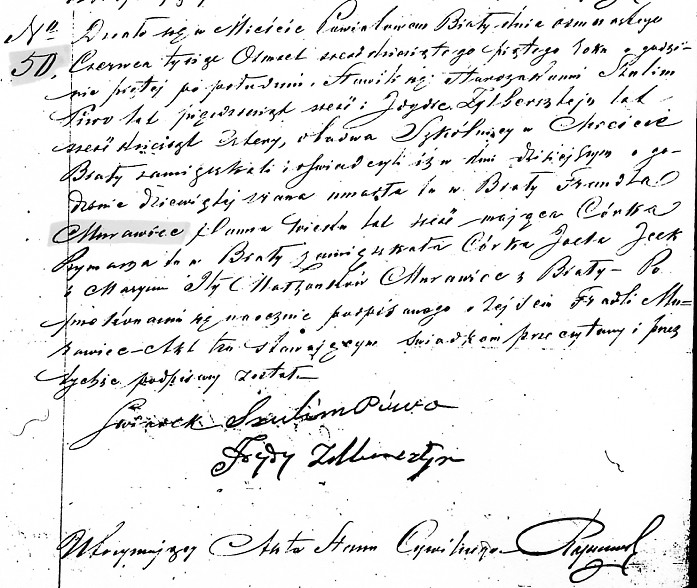 No
50.
Działo się w Mieście Powiatowem Biały dnia osmnastego
Czerwca tysiąc Ośmset sześćdziesiątego piątego Roku o godzi-
nie piątej po południu. Stawili się starozakonni Szulim
Piwo lat pięćdziesiąt sześć i Zylbersztejn lat
sześćdziesiąt cztery, obadwa Szkolnicy w Mieście
Biały zamieszkali i oświadczyli iż w dniu dzisiejszym o go-
dzinie dziewiątej zrana umarła tu w Biały Frandla
Murawiec Panna wieku lat sześć mająca Córka
Rymarza tu w Biały zamieszkała Córka Jocka
i Maryem Ity Małżonków Murawiec z Biały – Po
przekonaniu się naocznie podpisanego o Zejściu Fradli Mu=
rawiec – Akt ten stawającym świadkom przeczytany i przez
tychże podpisany został.
Świadek Szulim Piwo
Zylbersztejn
Utrzymujący Akta Stanu Cywilnego